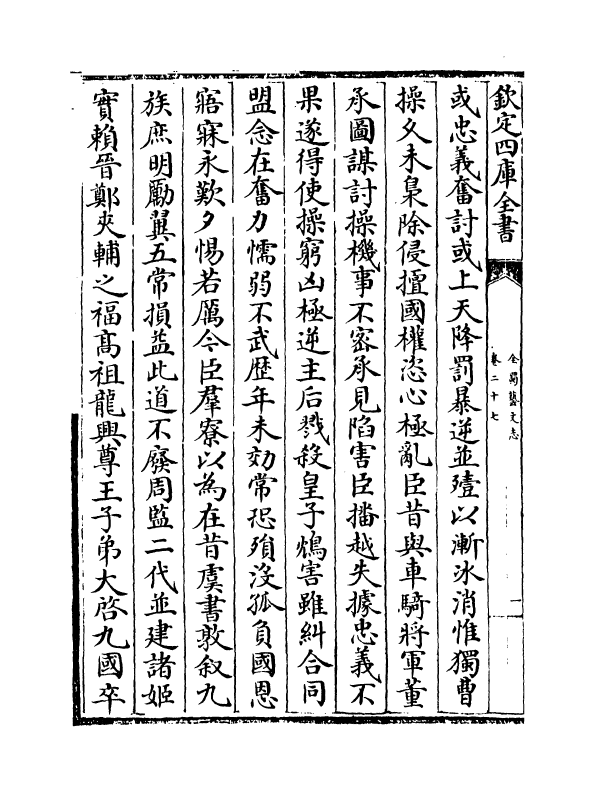 欽定四庫全書
全蜀藝文志
卷二十七
一
或忠義奮討或上天降罰暴逆並殪以漸冰消惟獨曹
操久未梟除侵擅國權恣心極亂臣昔與車騎將軍董
承圖謀討操機事不密承見陷害臣播越失據忠義不
果遂得使操窮凶極逆主后戮殺皇子鴆害雖糾合同
盟念在奮力懦弱不武歴年未効常恐殞沒孤負國恩
寤寐永歎夕惕若厲今臣羣寮以為在昔虞書敦叙九
族庶明勵翼五常損益此道不廢周監二代並建諸姬
實賴晉鄭夾輔之福髙祖龍興尊王子弟大啓九國卒